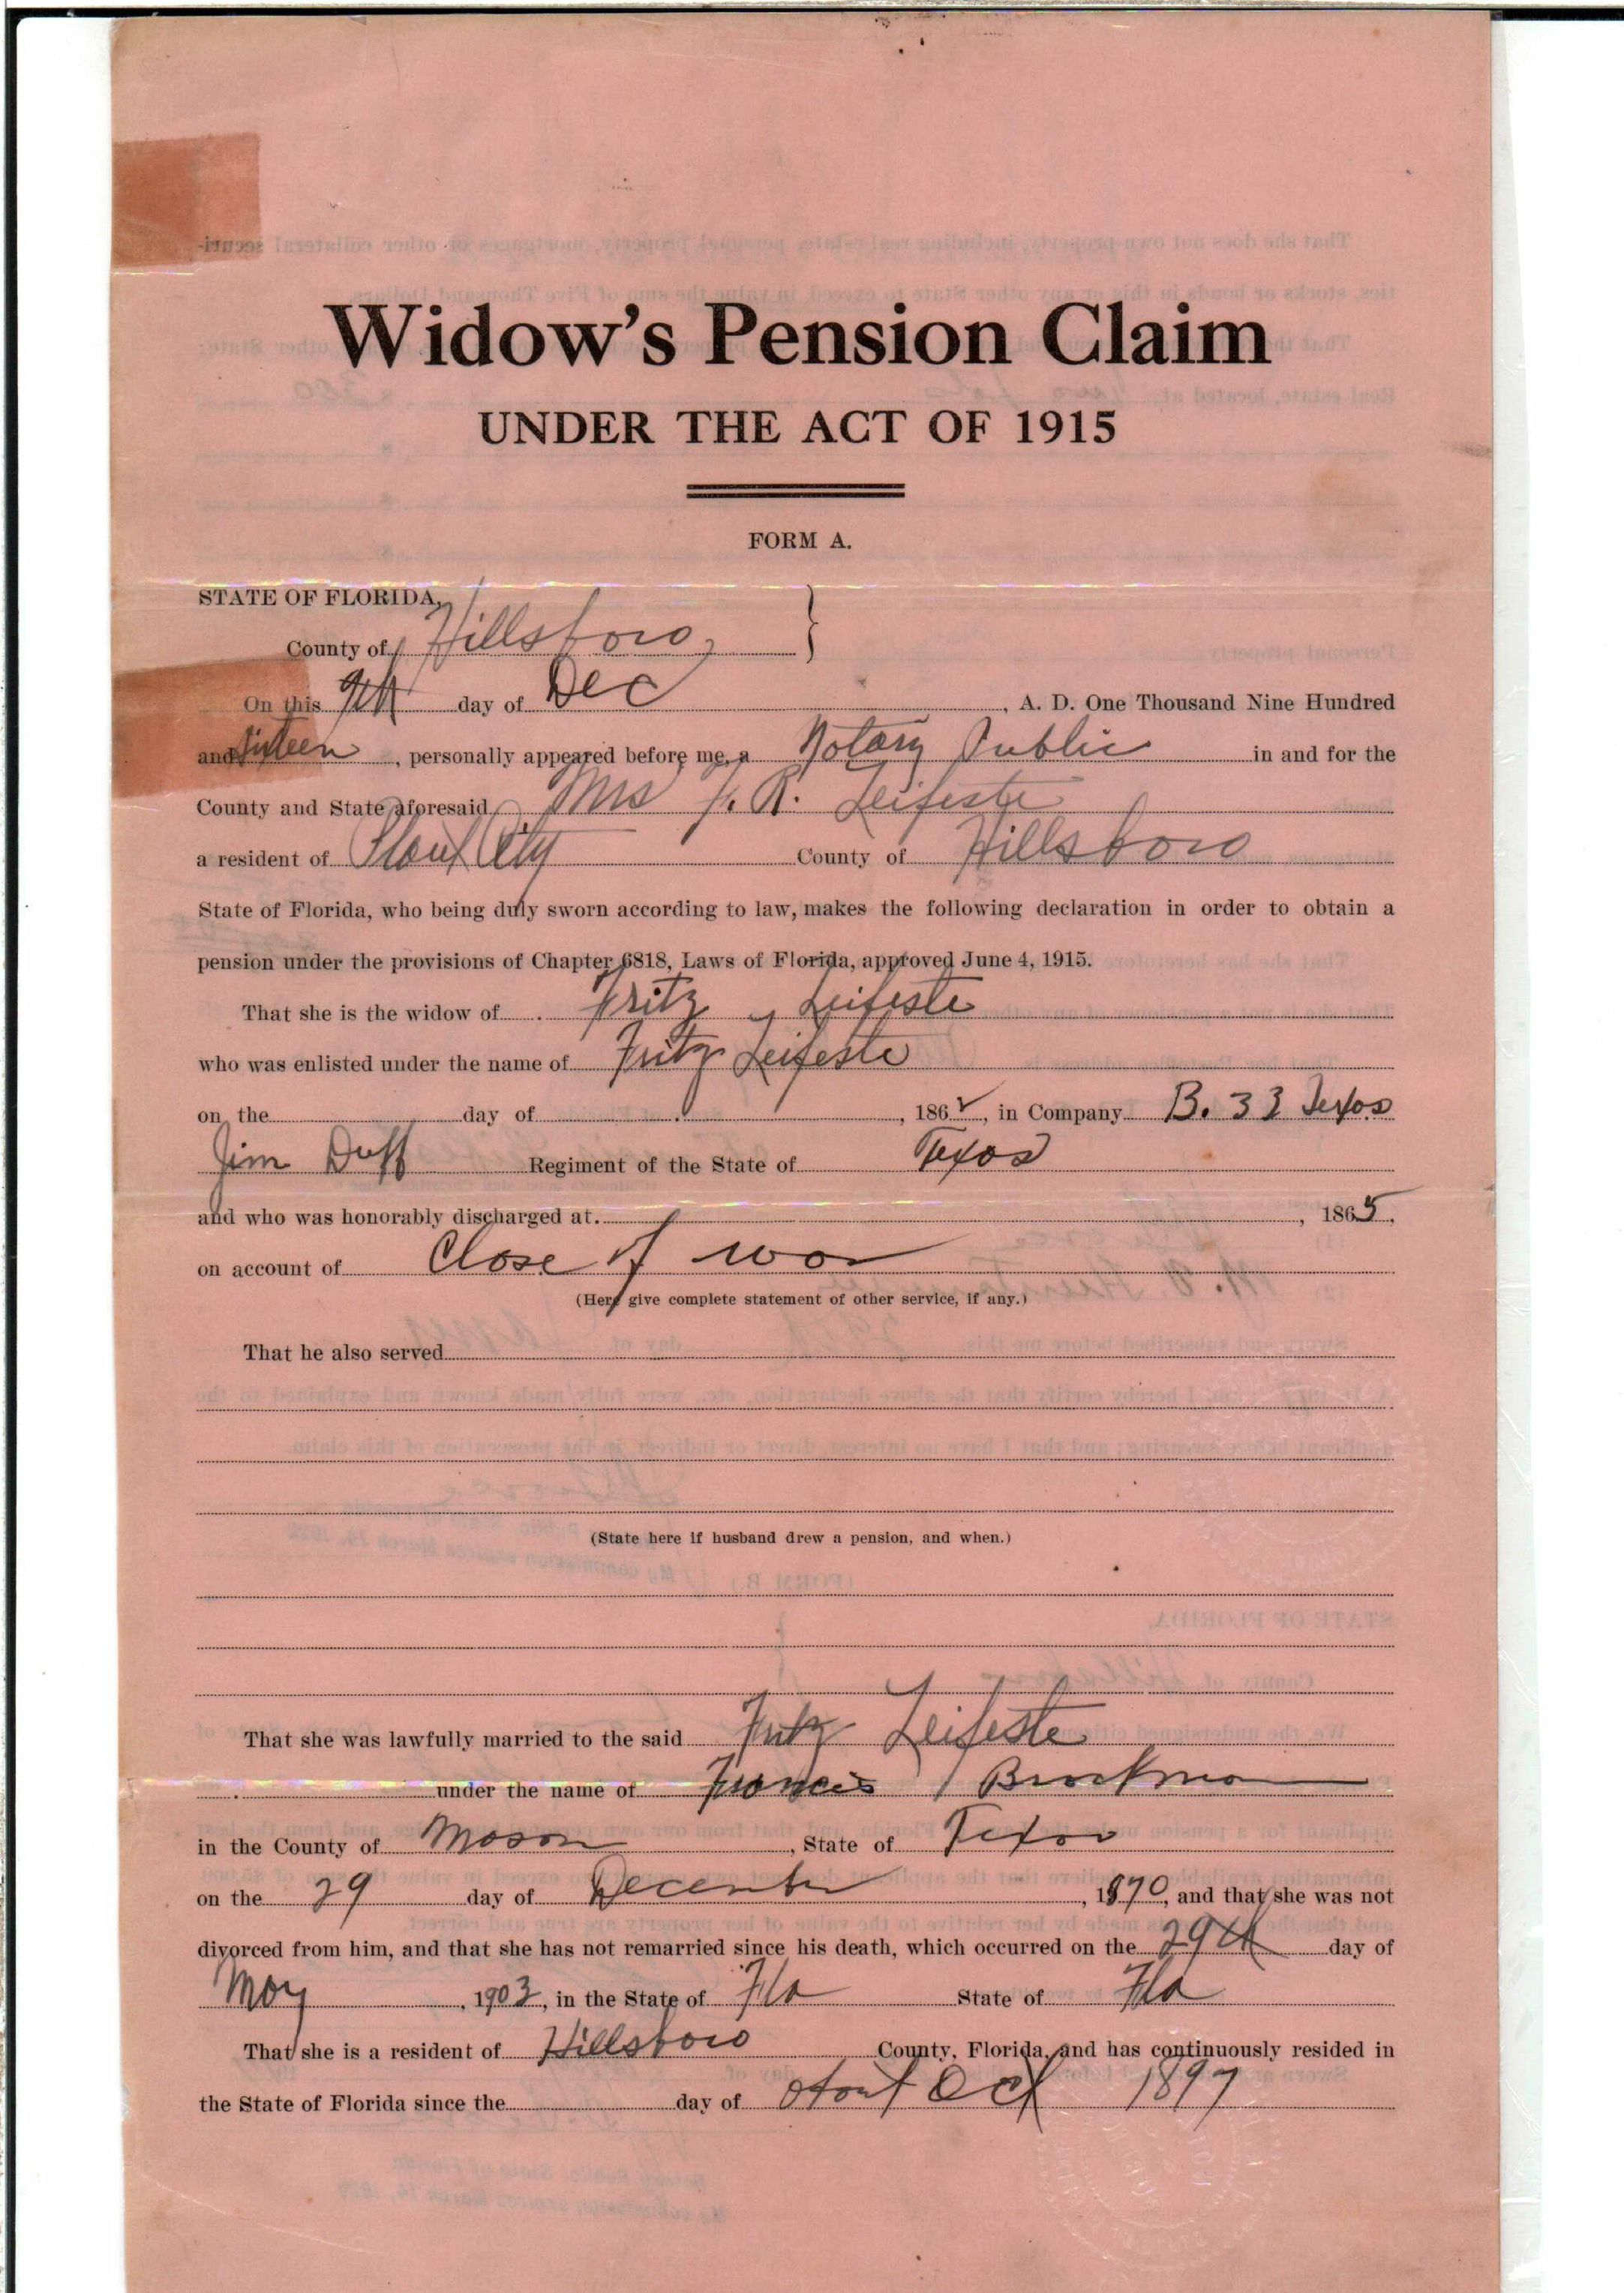 Widow's Pension Claim
UNDER THE ACT OF 1915
FORM A.
STATE OF FLORIDA,
County of Hillsboro,
On this 9th day of Dec , A. D. One Thousand Nine Hundred
and , personally appeared before me, a Notary Public in and for the
County and State aforesaid Mrs F. R. Leifeste
a resident of Plant City County of Hillsboro
State of Florida, who being duly sworn according to law, makes the following declaration in order to obtain a
pension under the provisions of Chapter 6818, Laws of Florida, approved June 4, 1915.
That she is the widow of Fritz Leifeste
who was enlisted under the name of Fritz Leifeste
on the day of , 1862, in Company B. 33 Texas
Jim Duff Regiment of the State of Texas
and who was honorably discharged at , 1865,
on account of Close of war
(Here give complete statement of other service, if any.)
That he also served
(State here if husband drew a pension, and when.)
That she was lawfully married to the said Fritz Leifeste
under the name of Francis Brockman
in the County of Mason , State of Texas
on the 29 day of December , 1870, and that she was not
divorced from him, and that she has not remarried since his death, which occurred on the 29th day of
May , 1903, in the State of Fla State of Fla
That she is a resident of Hillsboro County, Florida, and has continuously resided in
the State of Florida since the day of about Oct 1897